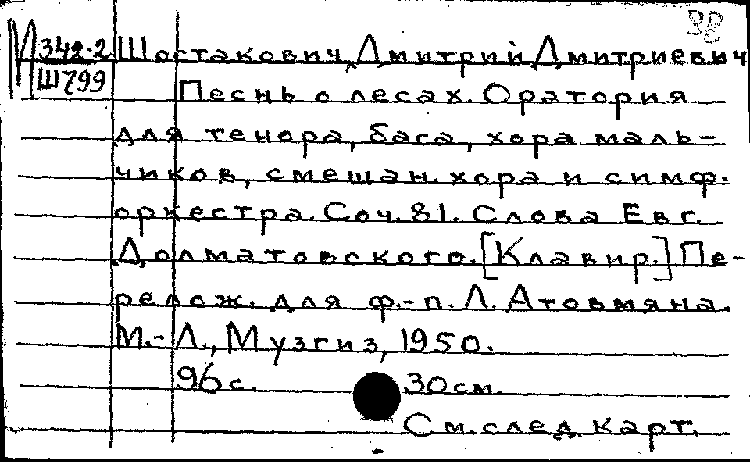 38
М342-2 Шостакович, Дмитрий Дмитриевич
Ш799
Песнь о лесах. Оратория
для тенора, баса, хора маль-
чиков, смешан. хора и симф.
оркестра. Соч. 81. Слова Евг.
Долматовского. [Клавир.] Пе-
релож. для ф.-п. Л. Атовмяна.
М.-Л., Музгиз, 1950.
96 с. 30 см.
См. след. карт.